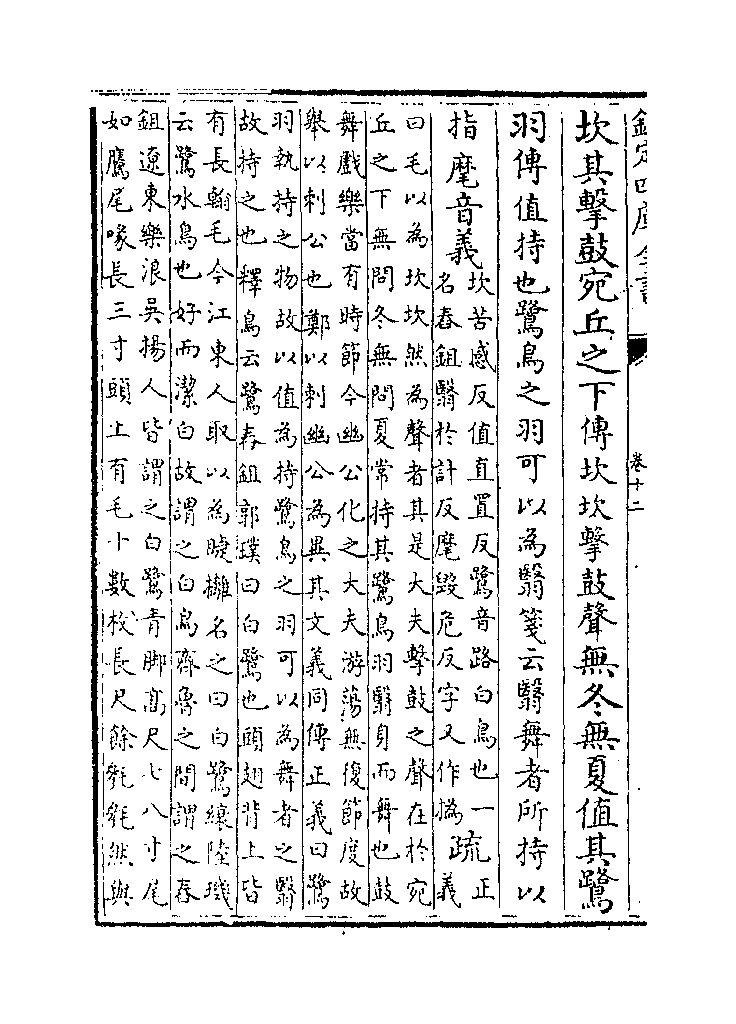 欽定四庫全書
卷十二
坎其擊鼓宛丘之下傳坎坎擊鼓聲無冬無夏值其鷺
羽傳值持也鷺鳥之羽可以為翳箋云翳舞者所持以
指麾音義
坎苦感反值直置反鷺音路白鳥也一
名舂鉏翳於計反麾毀危反字又作撝
疏
正
義
曰毛以為坎坎然為聲者其是大夫擊鼓之聲在於宛
丘之下無問冬無問夏常持其鷺鳥羽翳身而舞也鼓
舞戲樂當有時節今幽公化之大夫游蕩無復節度故
舉以刺公也鄭以刺幽公為異其文義同傳正義曰鷺
羽執持之物故以值為持鷺鳥之羽可以為舞者之翳
故持之也釋鳥云鷺舂鉏郭璞曰白鷺也頭翅背上皆
有長翰毛今江東人取以為睫攡名之曰白鷺縗陸璣
云鷺水鳥也好而潔白故謂之白鳥齊魯之間謂之舂
鉏遼東樂浪吳揚人皆謂之白鷺青脚高尺七八寸尾
如鷹尾喙長三寸頭上有毛十數枚長尺餘毿毿然與